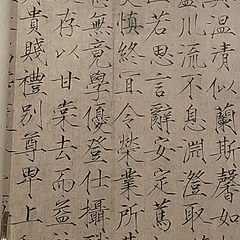 興溫清似蘭斯馨如
盛川流不息淵澄取
止若思言辭安定篤
慎終宜令榮業所
無竟學優登仕攝
存以甘棠去而益
貴賤禮別尊卑上